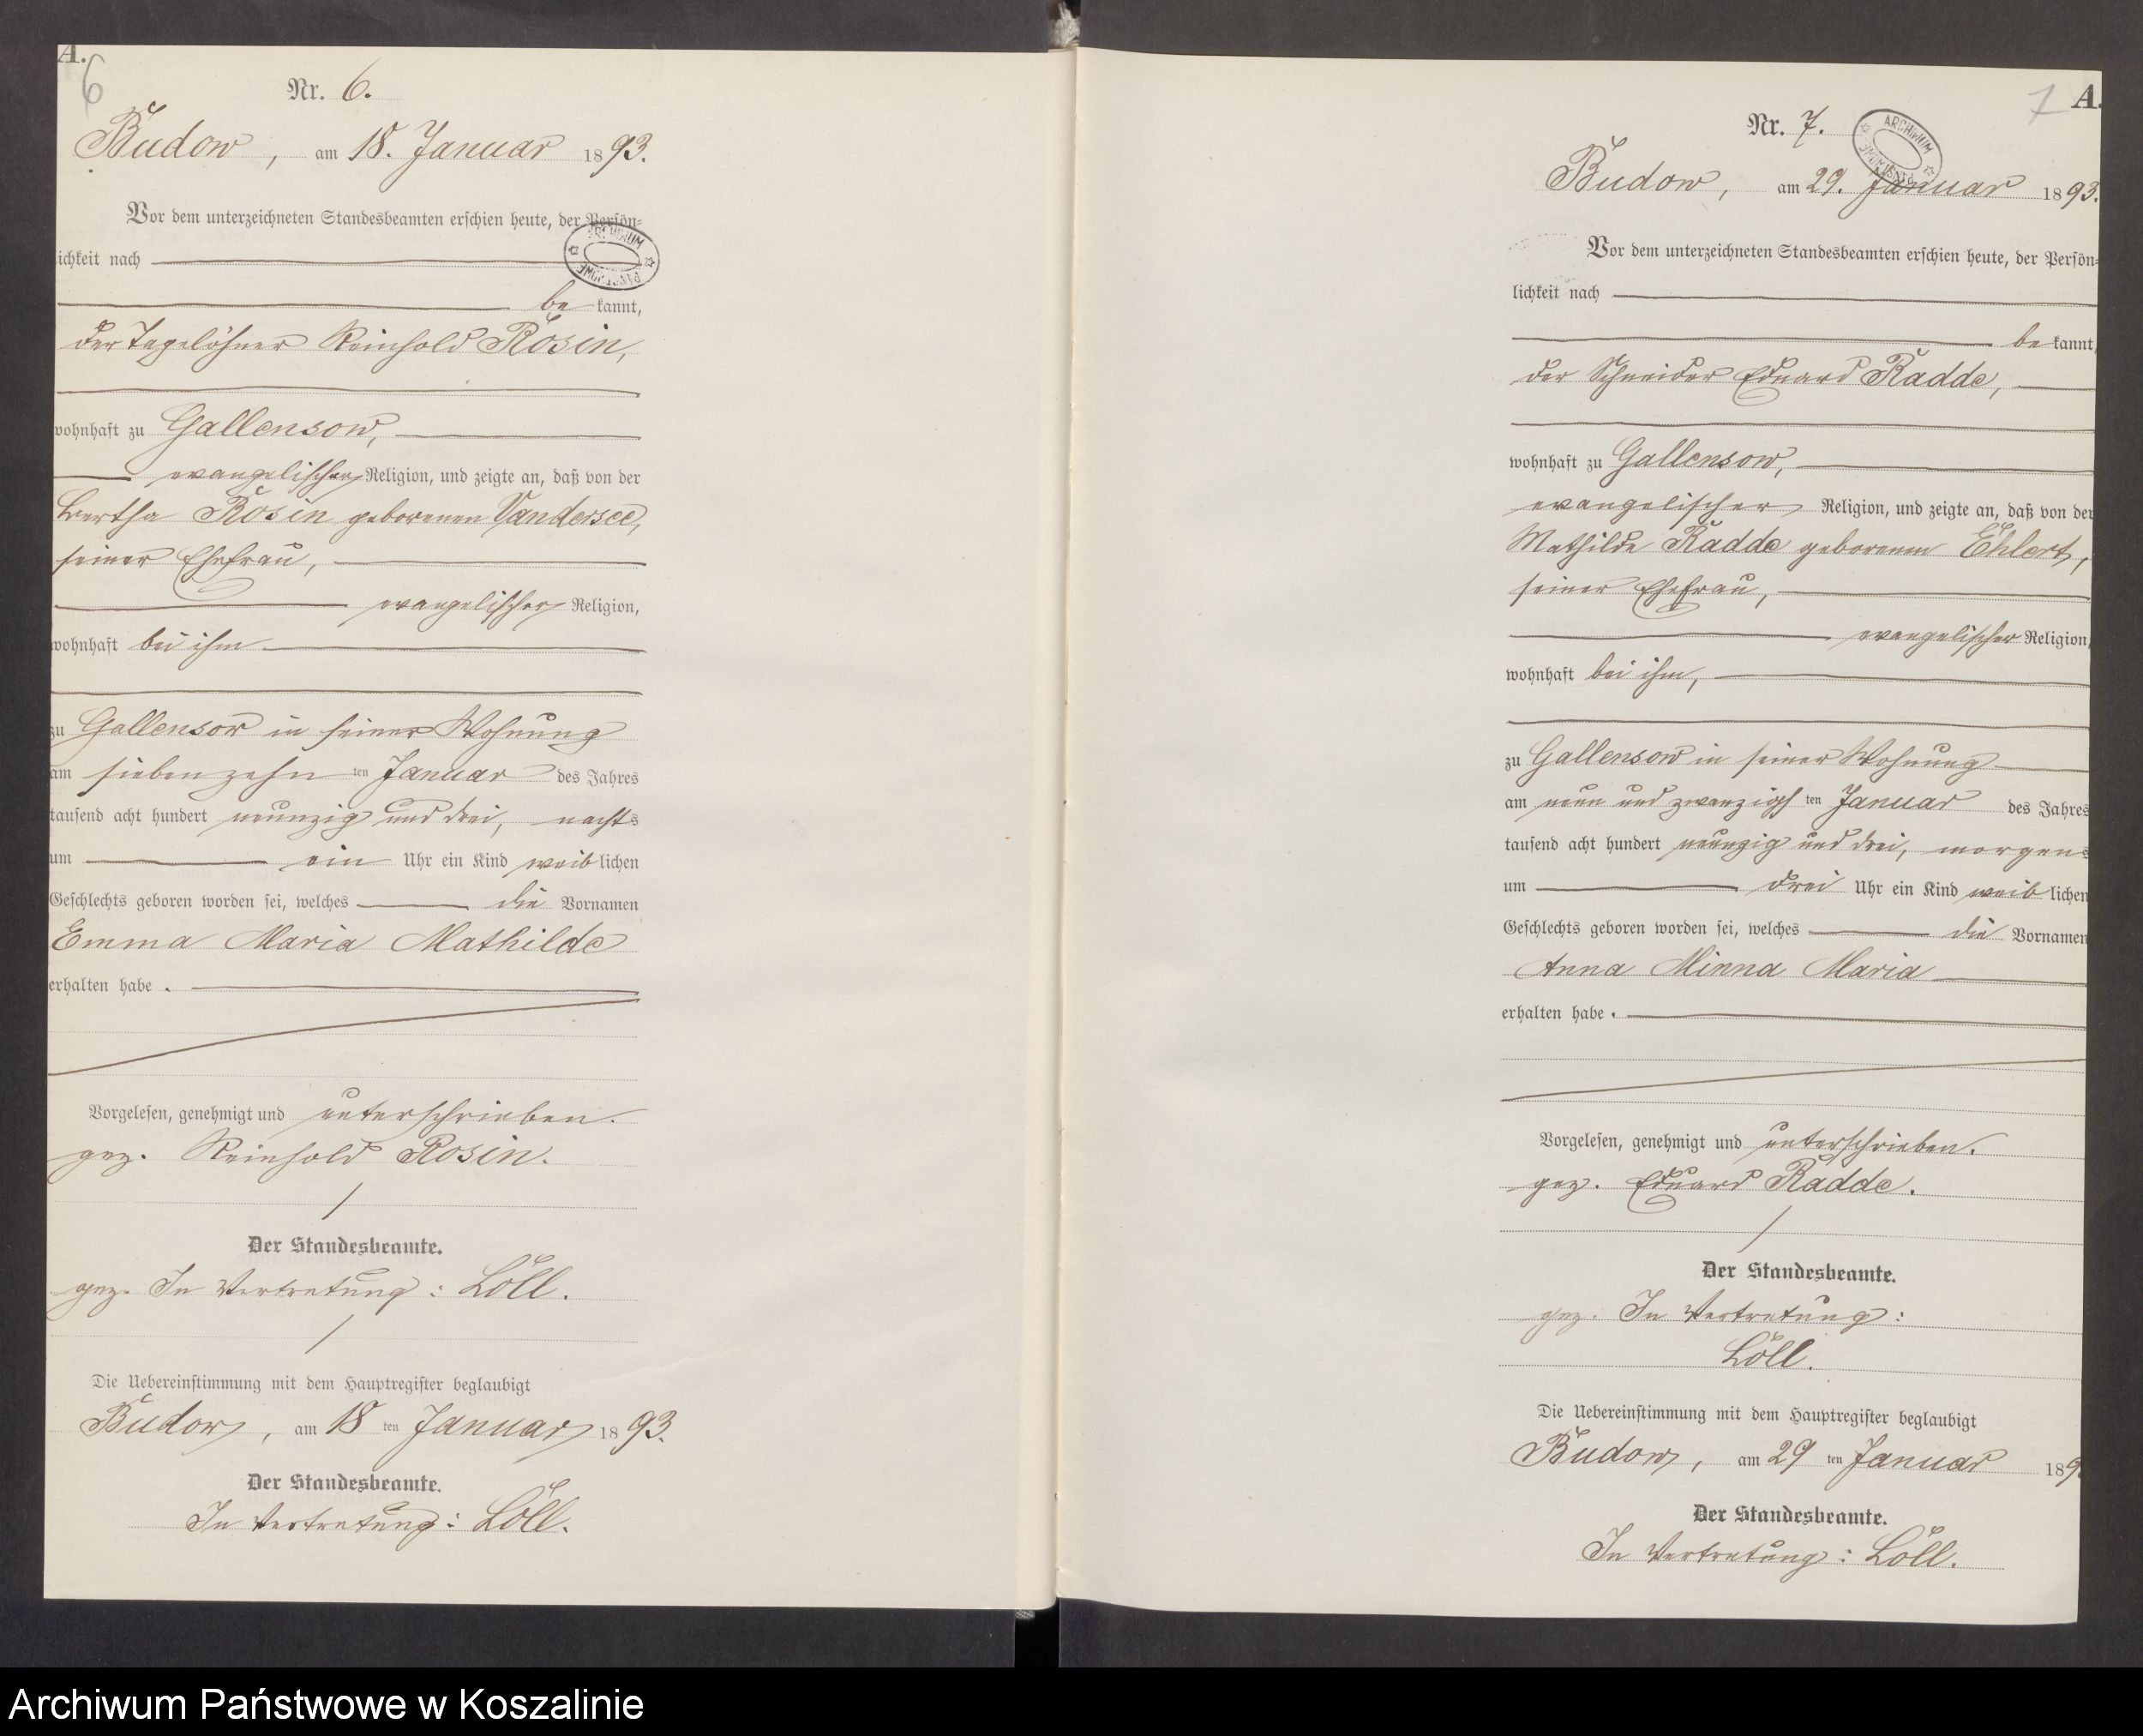 A.
6
Nr. 6.
Budow, am 18. Januar 1893.
Vor dem unterzeichneten Standesbeamten erschien heute, der Persön=
lichkeit nach
ARCHIWUM
PAŃSTWOWE
be kannt,
der Tagelöhner Reinhold Rosin,
wohnhaft zu Gallensow,
evangelischer Religion, und zeigte an, daß von der
Bertha Rosin geborenen Vandersee,
seiner Ehefrau,
evangelischer Religion,
wohnhaft bei ihm
zu Gallensow in seiner Wohnung
am siebenzehn ten Januar des Jahres
tausend acht hundert neunzig und drei, nachts
um ein Uhr ein Kind weiblichen
Geschlechts geboren worden sei, welches die Vornamen
Emma Maria Mathilde
erhalten habe.
Vorgelesen, genehmigt und unterschrieben.
gez. Reinhold Rosin.
Der Standesbeamte.
gez. In Vertretung: Löll.
Die Uebereinstimmung mit dem Hauptregister beglaubigt
Budow, am 18 ten Januar 1893.
Der Standesbeamte.
In Vertretung: Löll.
7
A.
Nr. 7.
ARCHIWUM
PAŃSTWOWE
Budow, am 29. Januar 1893.
Vor dem unterzeichneten Standesbeamten erschien heute, der Persön=
lichkeit nach
be kannt,
der Schneider Eduard Radde,
wohnhaft zu Gallensow,
evangelischer Religion, und zeigte an, daß von der
Mathilde Radde geborenen Ehlert,
seiner Ehefrau,
evangelischer Religion,
wohnhaft bei ihm,
zu Gallensow in seiner Wohnung
am neun und zwanzigsten Januar des Jahres
tausend acht hundert neunzig und drei, morgens
um drei Uhr ein Kind weiblichen
Geschlechts geboren worden sei, welches die Vornamen
Anna Minna Maria
erhalten habe.
Vorgelesen, genehmigt und unterschrieben.
gez. Eduard Radde.
Der Standesbeamte.
gez. In Vertretung:
Löll.
Die Uebereinstimmung mit dem Hauptregister beglaubigt
Budow, am 29 ten Januar 189
Der Standesbeamte.
In Vertretung: Löll.
Archiwum Państwowe w Koszalinie